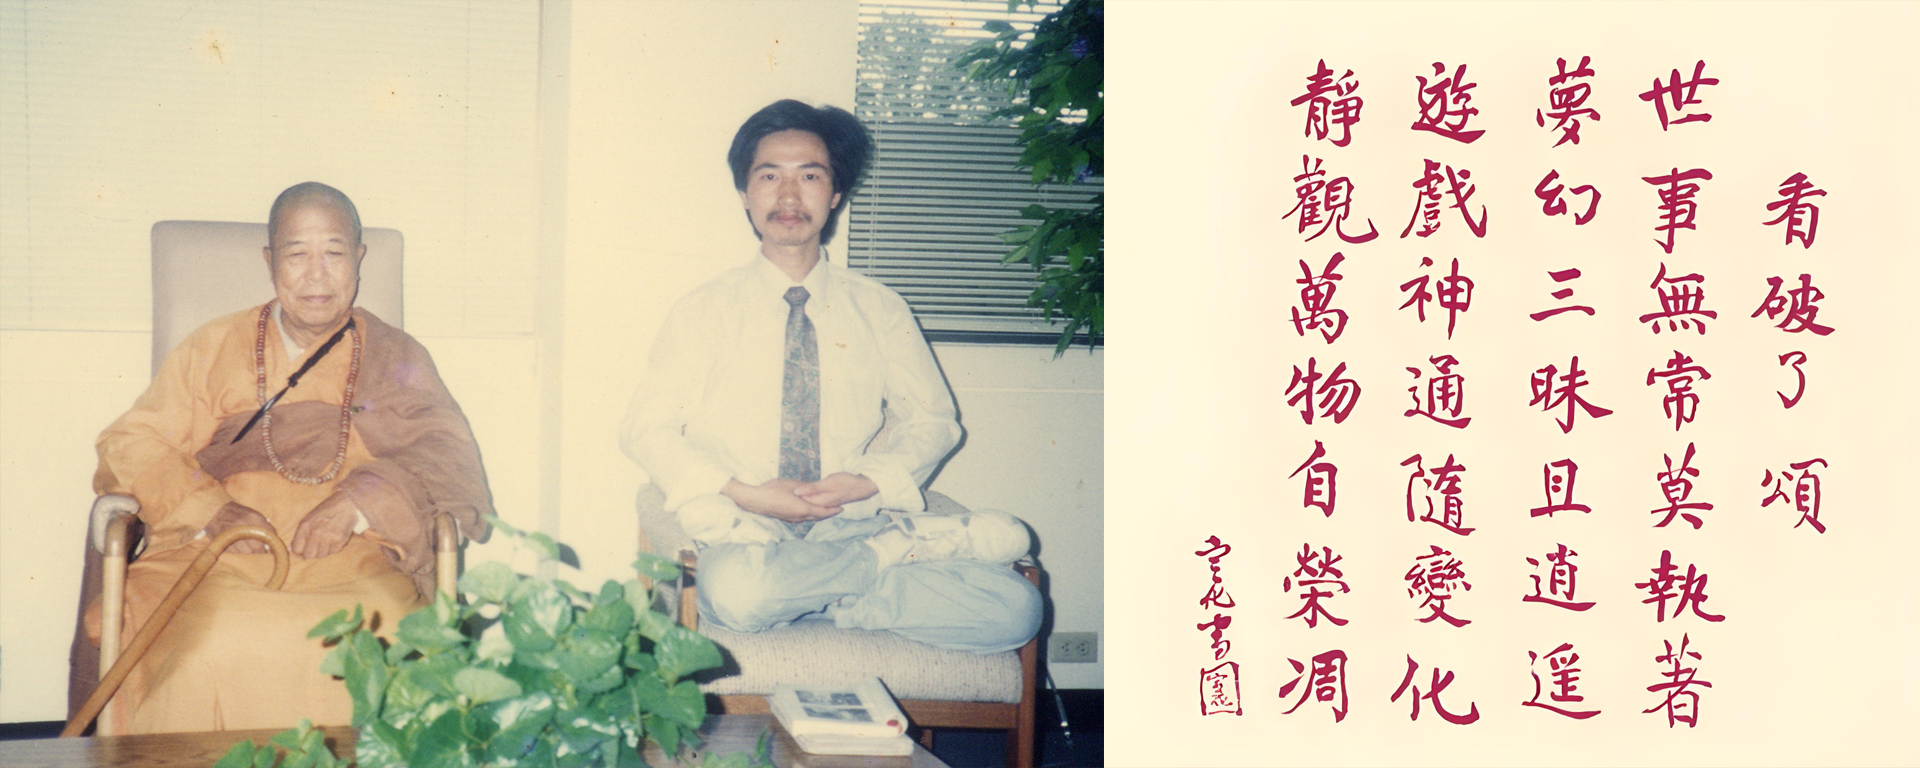 看破了頌
世事無常莫執著
夢幻三昧且逍遥
遊戲神通隨變化
靜觀萬物自榮凋
宣化書
宣化